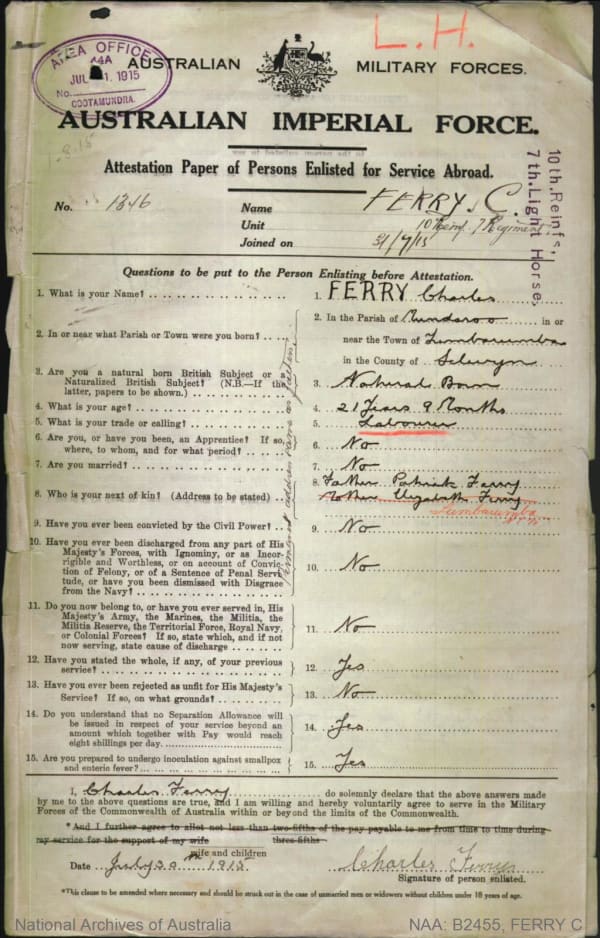 L.H.
AREA OFFICE
44A
JUL 1915
No.
COOTAMUNDRA.
AUSTRALIAN MILITARY FORCES.
AUSTRALIAN IMPERIAL FORCE.
Attestation Paper of Persons Enlisted for Service Abroad.
10th. Reinfs,
7th. Light Horse.
No. 1346 Name FERRY, C.
Unit 10 Reinf. 7 Regiment
Joined on 31/7/15
Questions to be put to the Person Enlisting before Attestation.
1. What is your Name? 1. FERRY Charles
2. In or near what Parish or Town were you born? 2. In the Parish of in or
near the Town of Tumbarumba
in the County of Selwyn
3. Are you a natural born British Subject or a
Naturalized British Subject? (N.B.—If the
latter, papers to be shown.) 3. Natural Born
4. What is your age? 4. 21 Years 9 Months
5. What is your trade or calling? 5. Labourer
6. Are you, or have you been, an Apprentice? If so,
where, to whom, and for what period? 6. No
7. Are you married? 7. No
8. Who is your next of kin? (Address to be stated) 8. Father Patrick Ferry
Mother Elizabeth Ferry
Tumbarumba
9. Have you ever been convicted by the Civil Power? 9. No
10. Have you ever been discharged from any part of His
Majesty's Forces, with Ignominy, or as Incor-
rigible and Worthless, or on account of Convic-
tion of Felony, or of a Sentence of Penal Servi-
tude, or have you been dismissed with Disgrace
from the Navy? 10. No
11. Do you now belong to, or have you ever served in, His
Majesty's Army, the Marines, the Militia, the
Militia Reserve, the Territorial Force, Royal Navy,
or Colonial Forces? If so, state which, and if not
now serving, state cause of discharge 11. No
12. Have you stated the whole, if any, of your previous
service? 12. Yes
13. Have you ever been rejected as unfit for His Majesty's
Service? If so, on what grounds? 13. No
14. Do you understand that no Separation Allowance will
be issued in respect of your service beyond an
amount which together with Pay would reach
eight shillings per day. 14. Yes
15. Are you prepared to undergo inoculation against smallpox
and enteric fever? 15. Yes
I, Charles Ferry do solemnly declare that the above answers made
by me to the above questions are true, and I am willing and hereby voluntarily agree to serve in the Military
Forces of the Commonwealth of Australia within or beyond the limits of the Commonwealth.
*And I further agree to allot not less than two-fifths of the pay payable to me from time to time during
my service for the support of my wife three-fifths
wife and children
Date July 30th 1915 Charles Ferry
Signature of person enlisted.
*This clause to be amended where necessary and should be struck out in the case of unmarried men or widowers without children under 18 years of age.
National Archives of Australia NAA: B2455, FERRY C